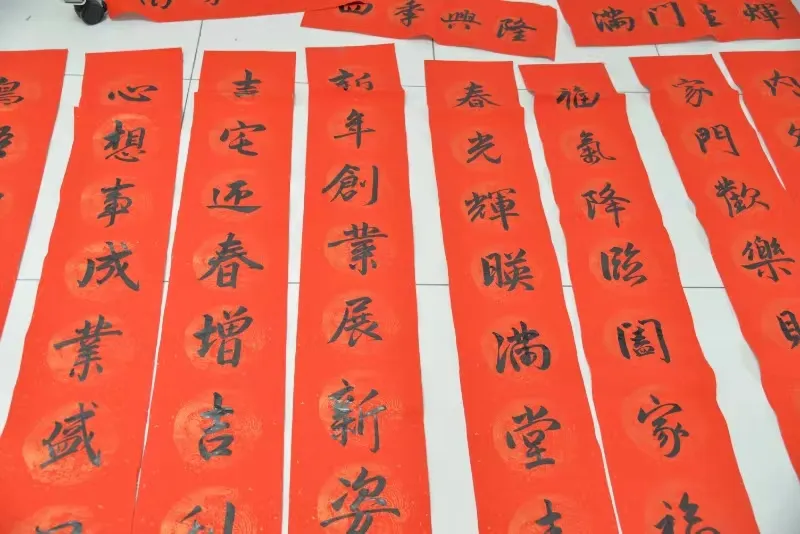 四季興隆
滿门生輝
心想事成業盛
吉宅迎春增吉利
新年創業展新姿
春光輝暎滿堂吉
福氣降臨闔家福
家門歡樂財
内